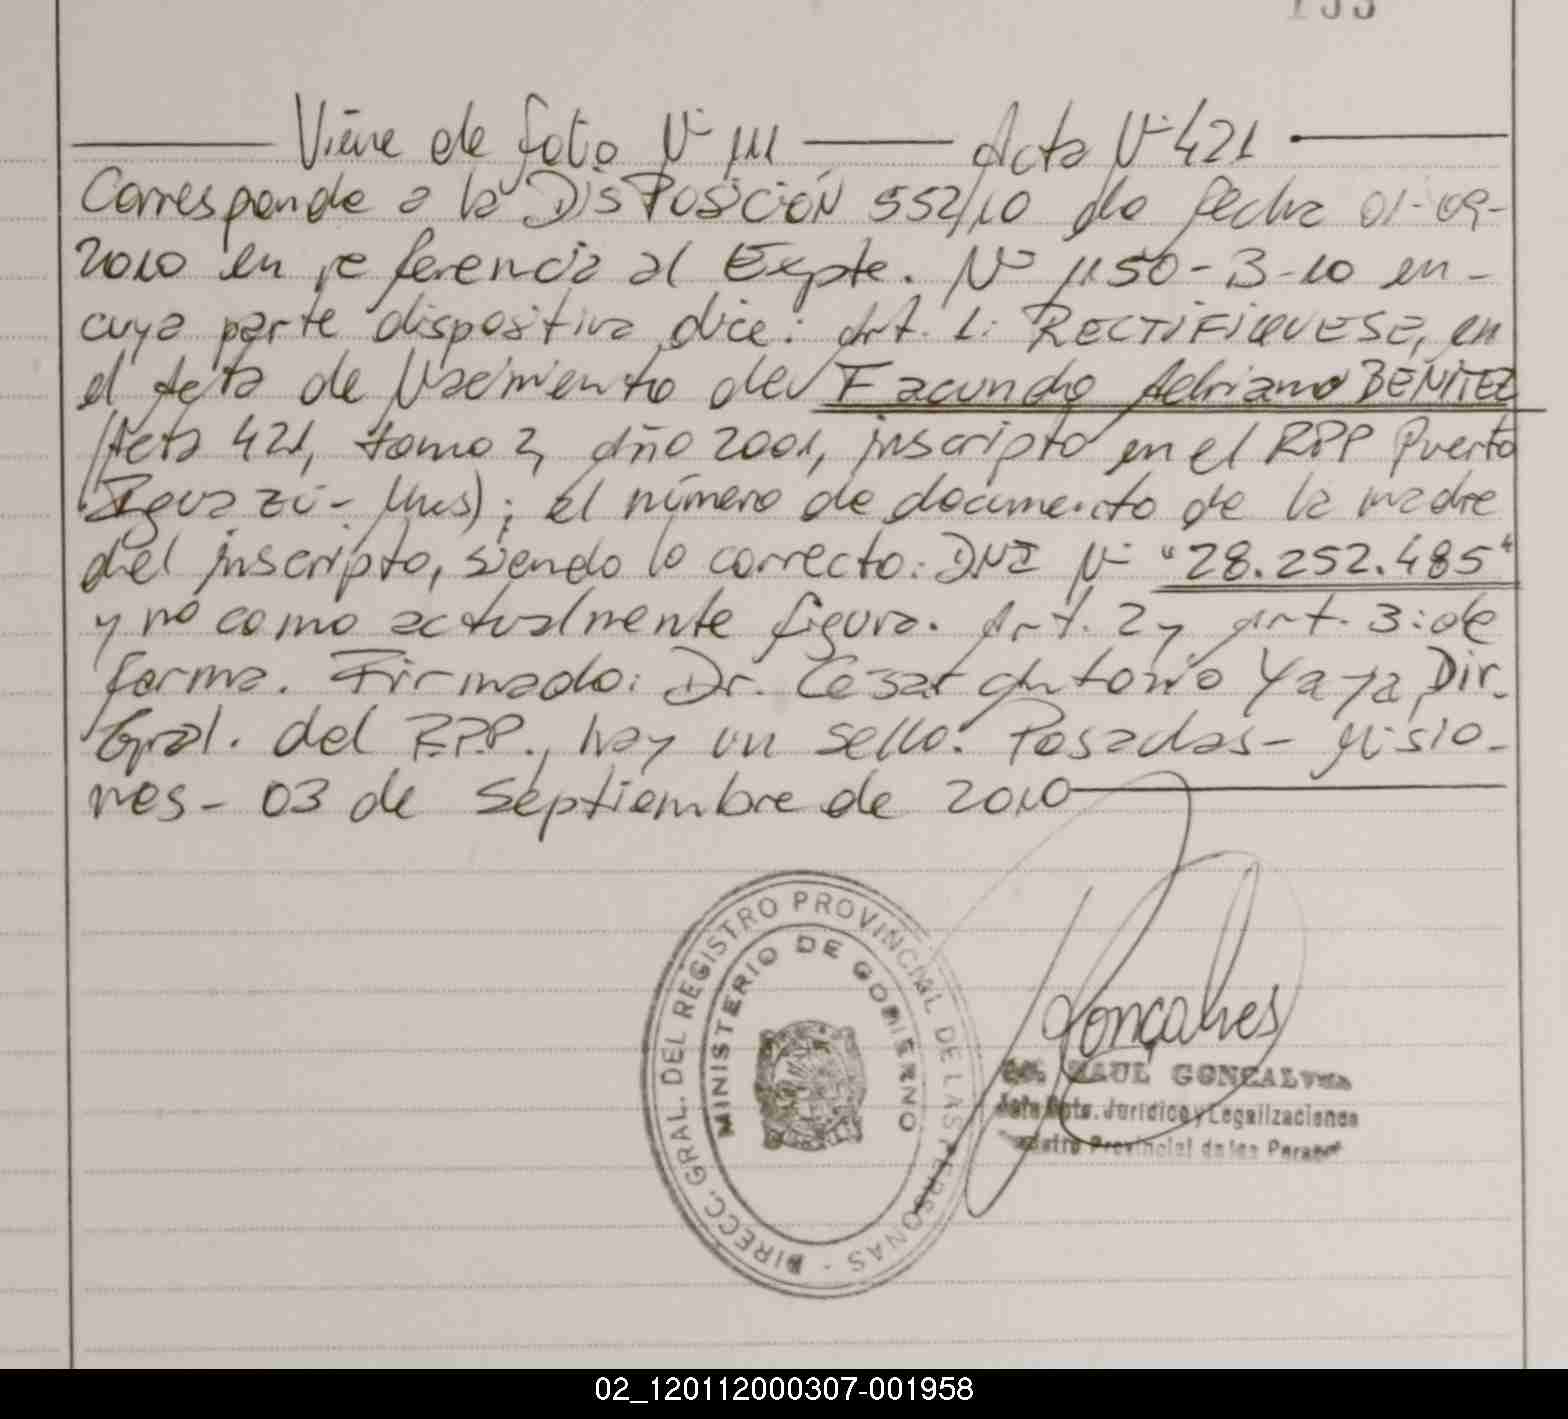 Viene de folio Nº 111 Acta Nº 421
Corresponde a la DISPOSICIÓN 552/10 de fecha 01-09-
2010 en referencia al Expte. Nº 1150-B-10 en
cuya parte dispositiva dice: Art. 1: RECTIFIQUESE, en
el Acta de Nacimiento de Facundo Adriano BENITEZ
(Acta 421, tomo 2, Año 2001, inscripto en el RPP Puerto
Iguazú - Mnes); el número de documento de la madre
del inscripto, siendo lo correcto: DNI Nº "28.252.485"
y no como actualmente figura. Art. 2 y Art. 3: de
forma. Firmado: Dr. Cesar Antonio Yaya Dir.
Gral. del R.P.P., hay un sello. Posadas - Misio-
nes - 03 de Septiembre de 2010
DIRECC. GRAL. DEL REGISTRO PROVINCIAL DE LAS PERSONAS -
MINISTERIO DE GOBIERNO
Gonçalves
RAUL GONCALVES
Jefe Dpto. Jurídico y Legalizaciones
Provincial de las
02_120112000307-001958